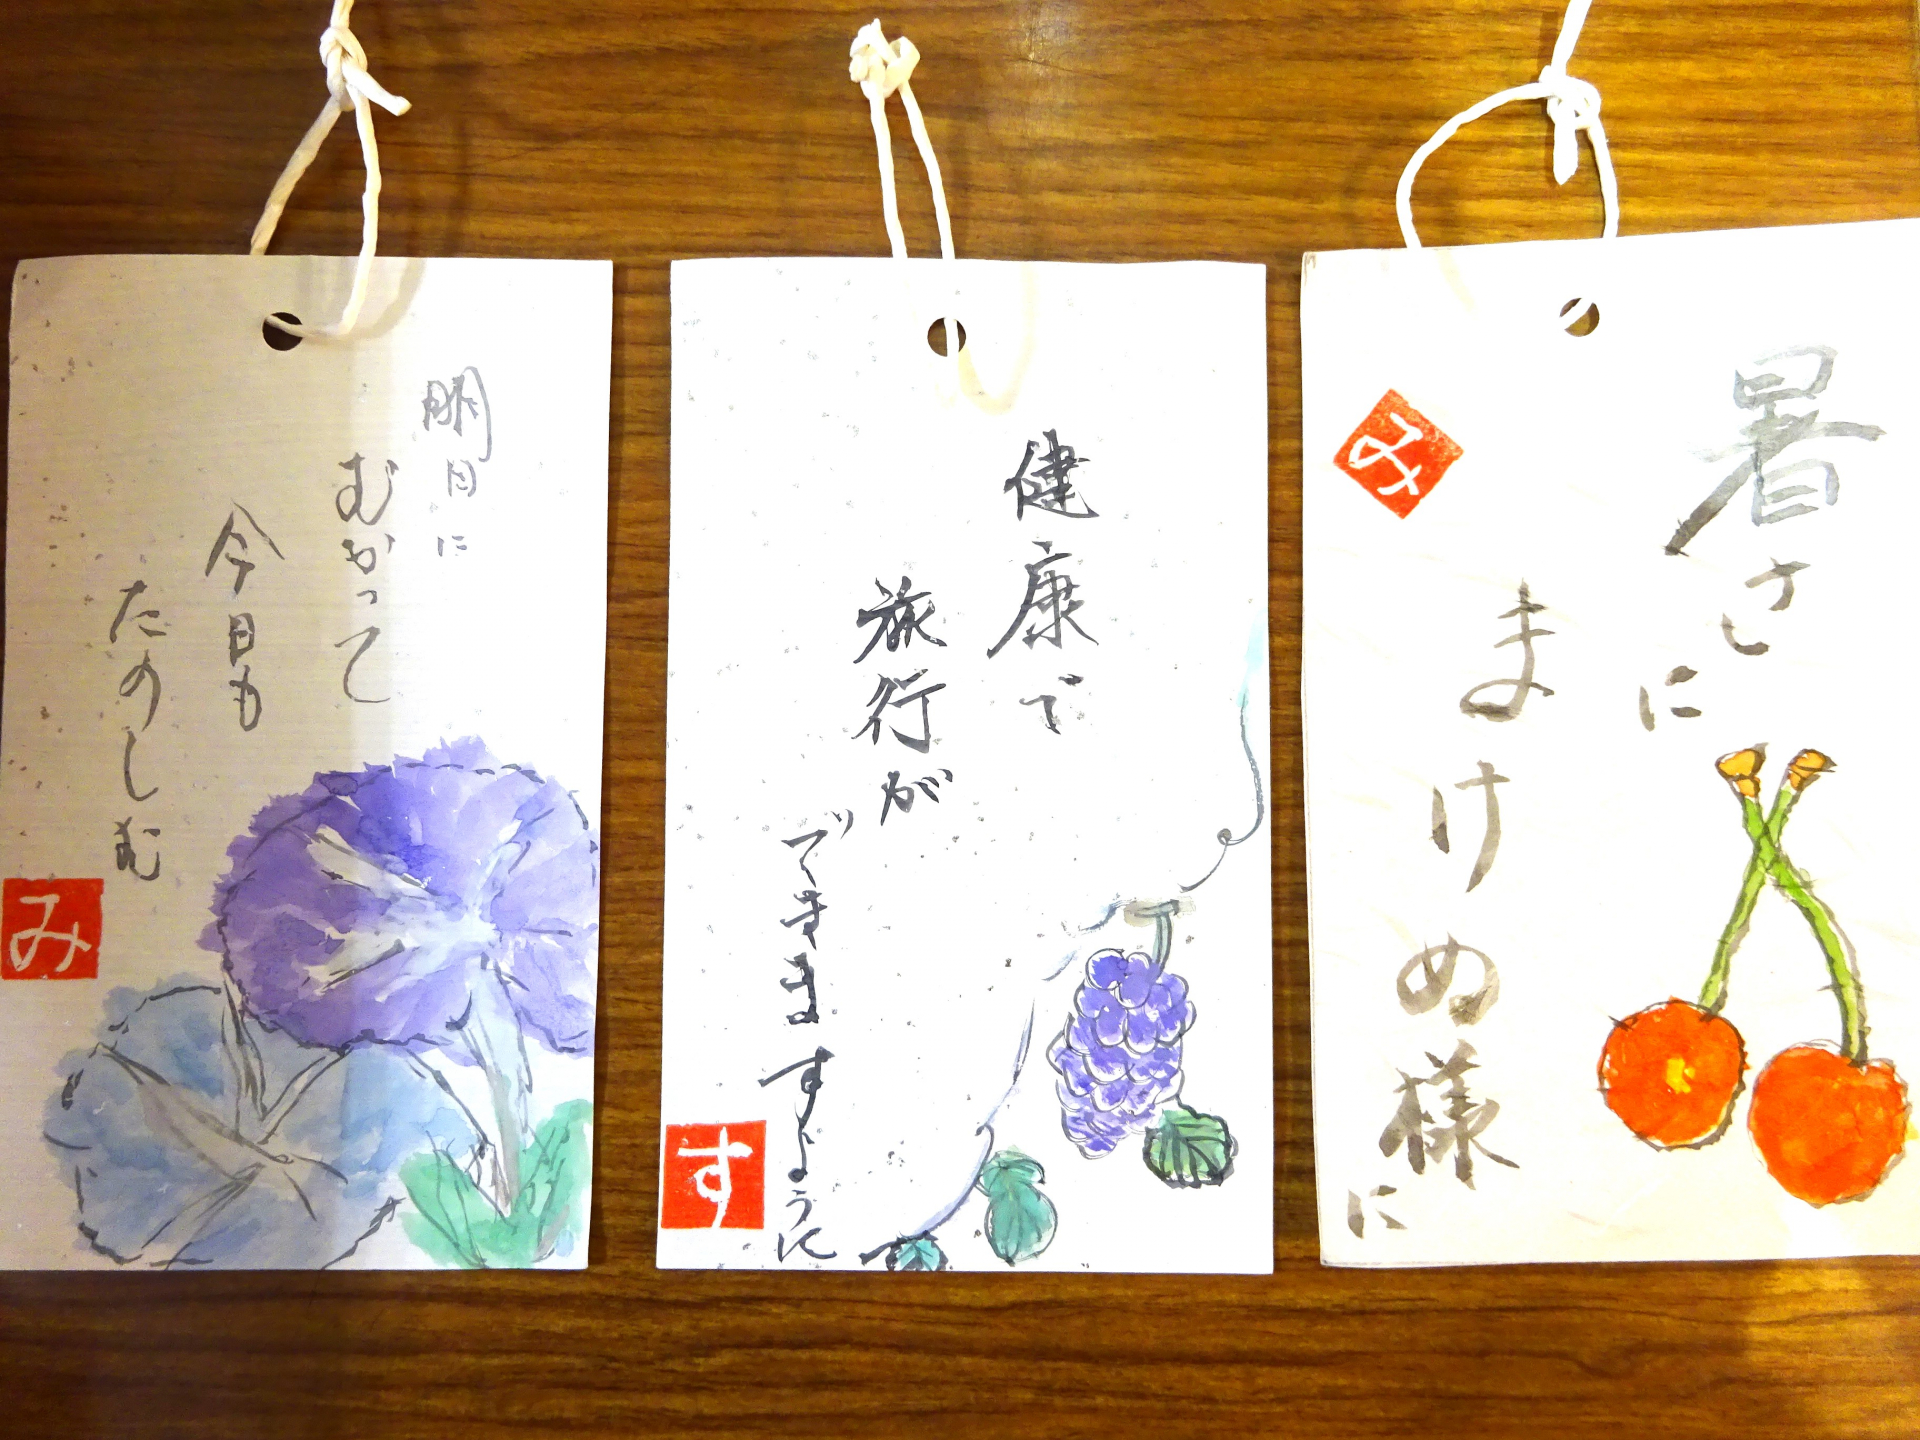 明日に
むかって
今日も
たのしむ
み
健康で
旅行が
できますように
す
暑さに
まけぬ様に
み